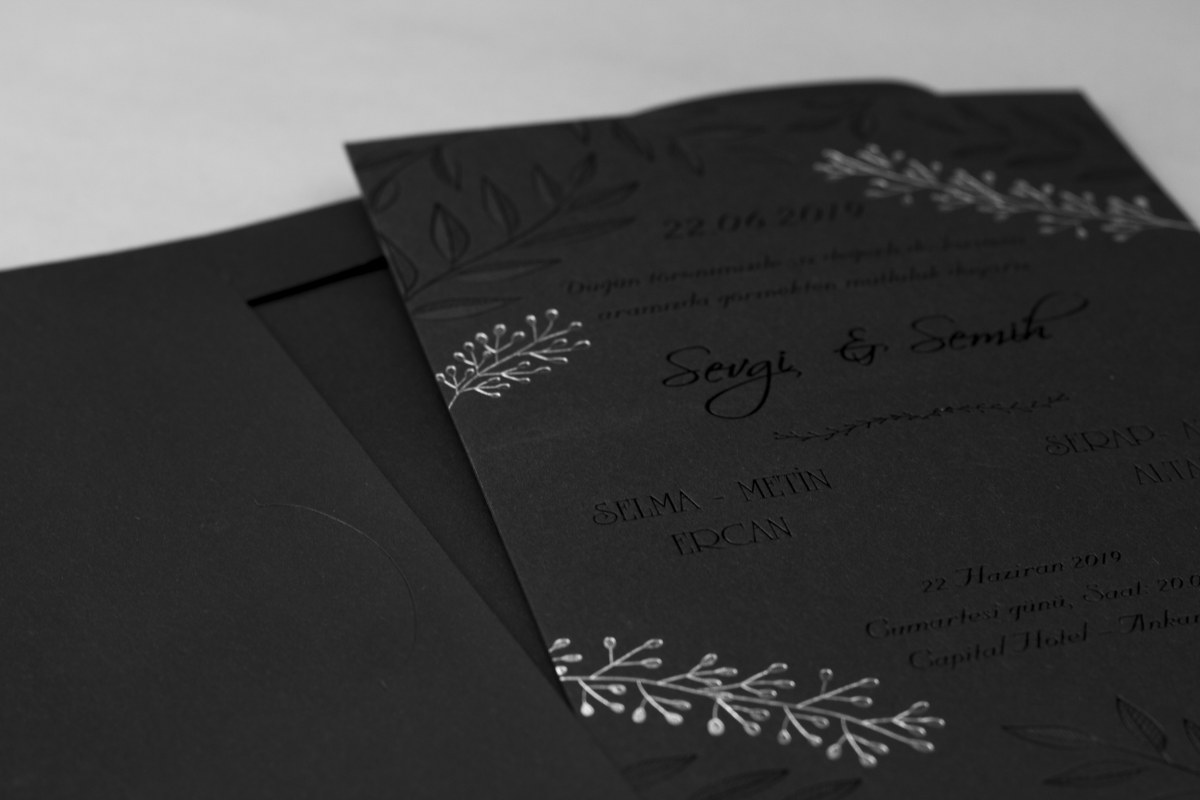 22.06.2019
Düğün törenimizde siz de
aramızda görmekten mutluluk duyarız
Sevgi & Semih
SELMA - METİN
ERCAN
SERAP -
22 Haziran 2019
Cumartesi günü, Saat: 20.0
Capital Hotel - Ankar